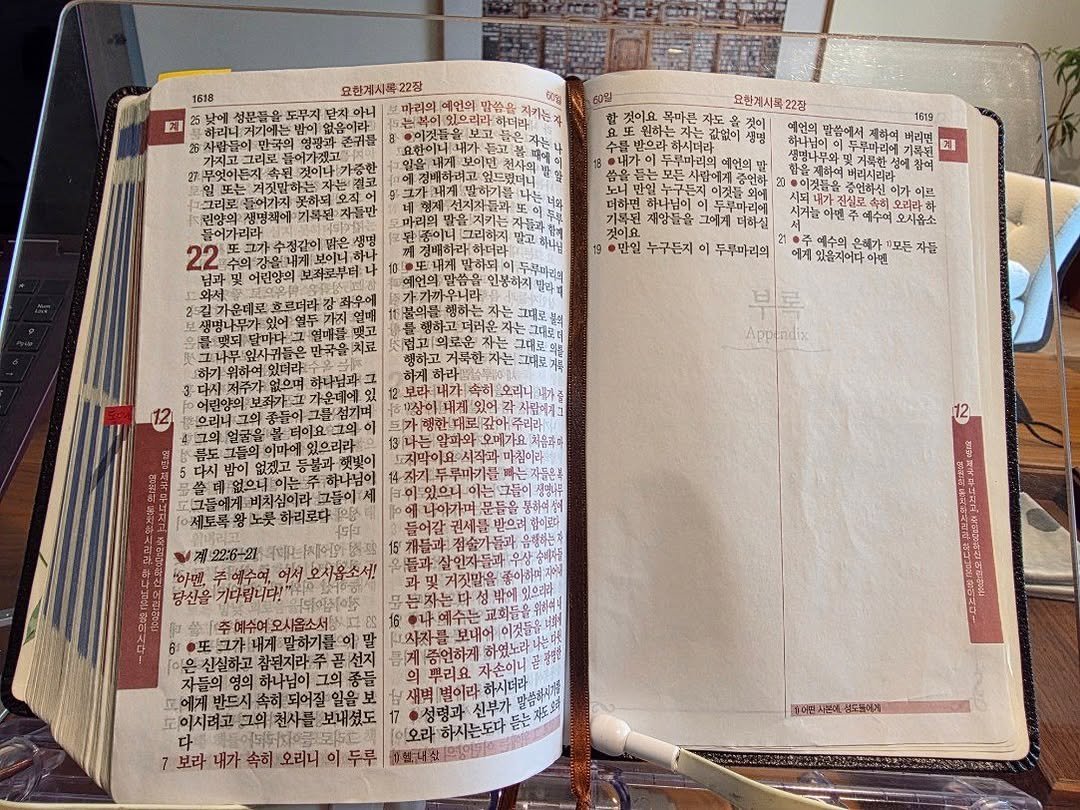 1618
요한계시록 22장
60일
25 낮에 성문들을 도무지 닫지 아니
하리니 거기에는 밤이 없음이라
26 사람들이 만국의 영광과 존귀를
가지고 그리로 들어가겠고
27 무엇이든지 속된 것이나 가증한
일 또는 거짓말하는 자는 결코
그리로 들어가지 못하되 오직 어
린양의 생명책에 기록된 자들만
들어가리라
22 또 그가 수정같이 맑은 생명
수의 강을 내게 보이니 하나
님과 및 어린양의 보좌로부터 나
와서
2 길 가운데로 흐르더라 강 좌우에
생명나무가 있어 열두 가지 열매
를 맺되 달마다 그 열매를 맺고
그 나무 잎사귀들은 만국을 치료
하기 위하여 있더라
3 다시 저주가 없으며 하나님과 그
어린양의 보좌가 그 가운데에 있
으리니 그의 종들이 그를 섬기며
4 그의 얼굴을 볼 터이요 그의 이
름도 그들의 이마에 있으리라
5 다시 밤이 없겠고 등불과 햇빛이
쓸 데 없으니 이는 주 하나님이
그들에게 비치심이라 그들이 세
세토록 왕 노릇 하리로다
계 22:6-21
"아멘, 주 예수여, 어서 오시옵소서!
당신을 기다립니다!"
주 예수여 오시옵소서
6 ●또 그가 내게 말하기를 이 말
은 신실하고 참된지라 주 곧 선지
자들의 영의 하나님이 그의 종들
에게 반드시 속히 되어질 일을 보
이시려고 그의 천사를 보내셨도
다
7 보라 내가 속히 오리니 이 두루
마리의 예언의 말씀을 지키는 자
는 복이 있으리라 하더라
8 ●이것들을 보고 들은 자는 나
요한이니 내가 듣고 볼 때에 이
일을 내게 보이던 천사의 발 앞
에 경배하려고 엎드렸더니
9 그가 내게 말하기를 나는 너와
네 형제 선지자들과 또 이 두루
마리의 말을 지키는 자들과 함께
된 종이니 그리하지 말고 하나님
께 경배하라 하더라
10 ●또 내게 말하되 이 두루마리의
예언의 말씀을 인봉하지 말라 때
가 가까우니라
11 불의를 행하는 자는 그대로 불의
를 행하고 더러운 자는 그대로 더
럽고 의로운 자는 그대로 의를
행하고 거룩한 자는 그대로 거룩
하게 하라
12 보라 내가 속히 오리니 내가 줄
1)상이 내게 있어 각 사람에게 그
가 행한 대로 갚아 주리라
13 나는 알파와 오메가요 처음과 마
지막이요 시작과 마침이라
14 자기 두루마기를 빠는 자들은 복
이 있으니 이는 그들이 생명나무
에 나아가며 문들을 통하여 성에
들어갈 권세를 받으려 함이로다
15 개들과 점술가들과 음행하는 자
들과 살인자들과 우상 숭배자들
과 및 거짓말을 좋아하며 지어내
는 자는 다 성 밖에 있으리라
16 ●나 예수는 교회들을 위하여 내
사자를 보내어 이것들을 너희에
게 증언하게 하였노라 나는 다윗
의 뿌리요 자손이니 곧 광명한
새벽 별이라 하시더라
17 ●성령과 신부가 말씀하시기를
오라 하시는도다 듣는 자도 오라
1) 헬, 내 삯
12
열방 제국 무너지고, 죽임당하신 어린양은
영원히 통치하시리라. 하나님은 왕이시다!
60일
요한계시록 22장
1619
계
할 것이요 목마른 자도 올 것이
요 또 원하는 자는 값없이 생명
수를 받으라 하시더라
18 ●내가 이 두루마리의 예언의 말
씀을 듣는 모든 사람에게 증언하
노니 만일 누구든지 이것들 외에
더하면 하나님이 이 두루마리에
기록된 재앙들을 그에게 더하실
것이요
19 ●만일 누구든지 이 두루마리의
예언의 말씀에서 제하여 버리면
하나님이 이 두루마리에 기록된
생명나무와 및 거룩한 성에 참여
함을 제하여 버리시리라
20 ●이것들을 증언하신 이가 이르
시되 내가 진실로 속히 오리라 하
시거늘 아멘 주 예수여 오시옵소
서
21 ●주 예수의 은혜가 1)모든 자들
에게 있을지어다 아멘
부록
Appendix
1) 어떤 사본에, 성도들에게
12
열방 제국 무너지고, 죽임당하신 어린양은
영원히 통치하시리라. 하나님은 왕이시다!
계
Num
Lock
9
PgUp
6